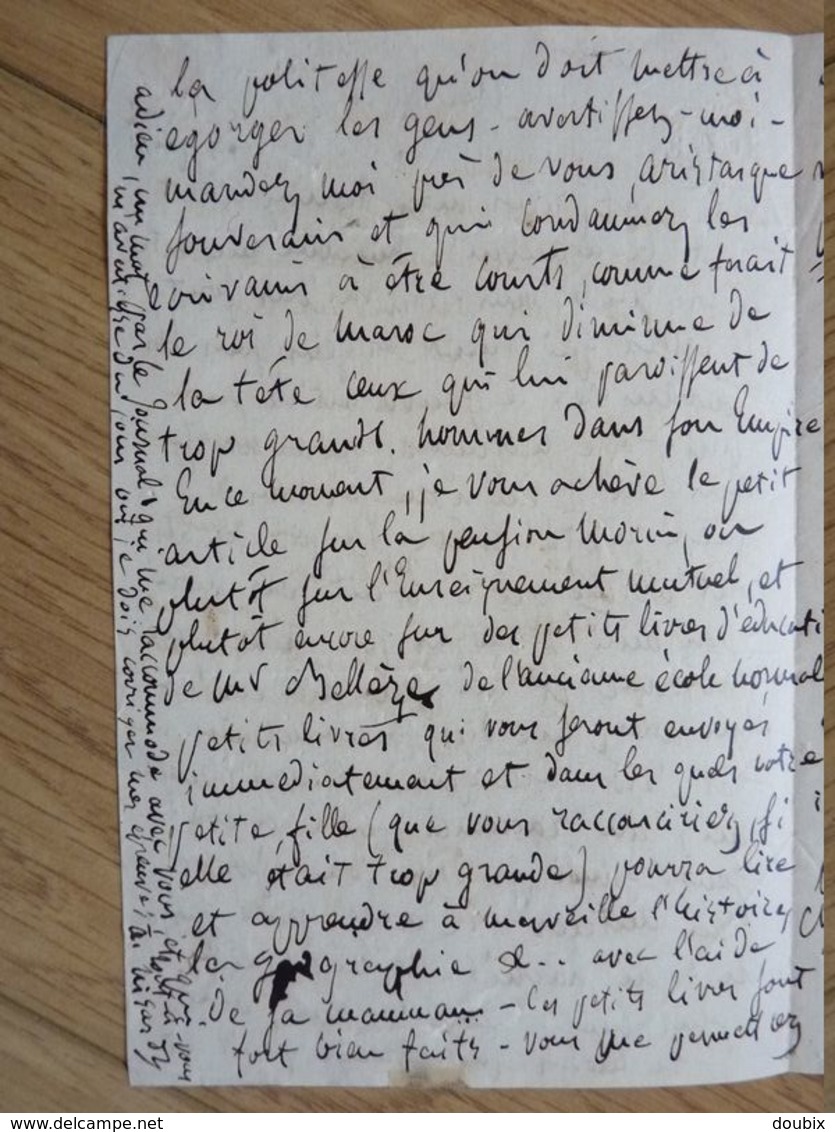 la politesse qu'on doit mettre à
égorger les gens - avertissez-moi -
mandez moi près de vous, aristarque
souverain et qui condamnez les
écrivains à être courts, comme ferait
le roi de maroc qui diminue de
la tête ceux qui lui paroissent de
trop grands hommes dans son Empire
En ce moment, je vous achève le petit
article sur la pension Morin, ou
plutôt sur l'Enseignement mutuel, et
plutôt encore sur des petits livres d'éducati
de Mr de l'ancienne école normal
petits livres qui vous seront envoyés
immédiatement et dans les quels votre
petite fille (que vous raccourciriez, si
elle était trop grande) pourra lire
et apprendre à merveille l'histoire,
la géographie &.. avec l'aide
de sa maman - Ces petits livres sont
fort bien faits - vous me permettez
adieu, un mot par le Journal qui me raccommode avec vous, et qui
m'avertisse du jour où je dois corriger mes épreuves - tout à vous
www.delcampe.net
doubix